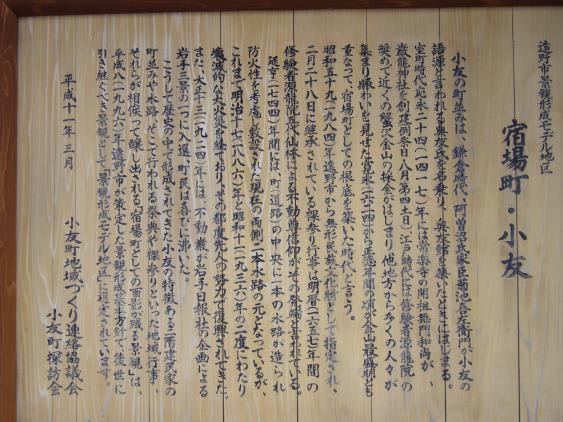 遠野市景観形成モデル地区
宿場町・小友
小友の町並みは、鎌倉時代、阿曽沼氏家臣菊池
語源と言われる奥友氏を名乗り、奥友館を築いたときにはじまる。
室町時代応永二十四(一四一七)年には常楽寺の開祖
巌龍神社を創建例祭日八月第四土日、江戸時代には修験者源龍院の
奨めで近くの蟹沢金山の採金がはじまり他地方から多くの人々が
集まり賑わいを見せた寛永(一六二四)から延宝年間の頃が金山最盛期とも
重なって、宿場町としての根底を築いた時代と言う。
昭和五十九(一九八四)年遠野市から無形民族文化財として指定され、
二月二十八日に継承されている裸参り行事は明暦(一六五七)年間の
修験者源龍院五代仙林による不動尊信仰がその発端と言われている。
延享(一七四四)年間には、町(道路)の中央に一本の水路が造られ
防火性を考慮し敷設された現在の両側二本水路の元となっているが、
これまで明治十七(一八八六)年と昭和十一(一九三六)年の二度にわたり
壊滅的な大火災を経ており、その都度先人の努力で復興されてきた。
また、大正十三(一九二四)年には、不動巌が岩手日報社の企画による
岩手三景の一つに入選、町民は喜びに沸いた。
こうして歴史の中で形成されてきた小友の特徴ある二階建民家の
町並みや水路、そこで行われる祭典や裸参りといった地域行事、
それらが相俟って醸し出される「宿場町としての面影が残る景観」は、
平成八(一九九六)年遠野市が策定した景観形成基本方針で後世に
引き継ぐべき景観として「景観形成モデル地区」に選定されています。
平成十一年三月
小友町地域づくり連絡協議会
小友町探訪会